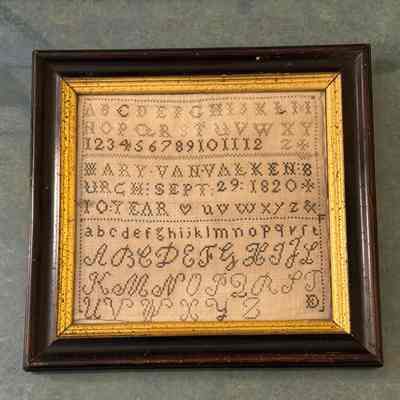 A B C D E F G H I J K L M
N O P Q R S T U V W X Y
1 2 3 4 5 6 7 8 9 10 11 12 Z
MARY·VANVALKENB
URGH·SEPT·29·1820
10·YEAR ♡ u v w x y z &
a b c d e f g h i j k l m n o p q r s t
A B C D E F G H I J L
K M N O P Q R S T
U V W X Y Z D